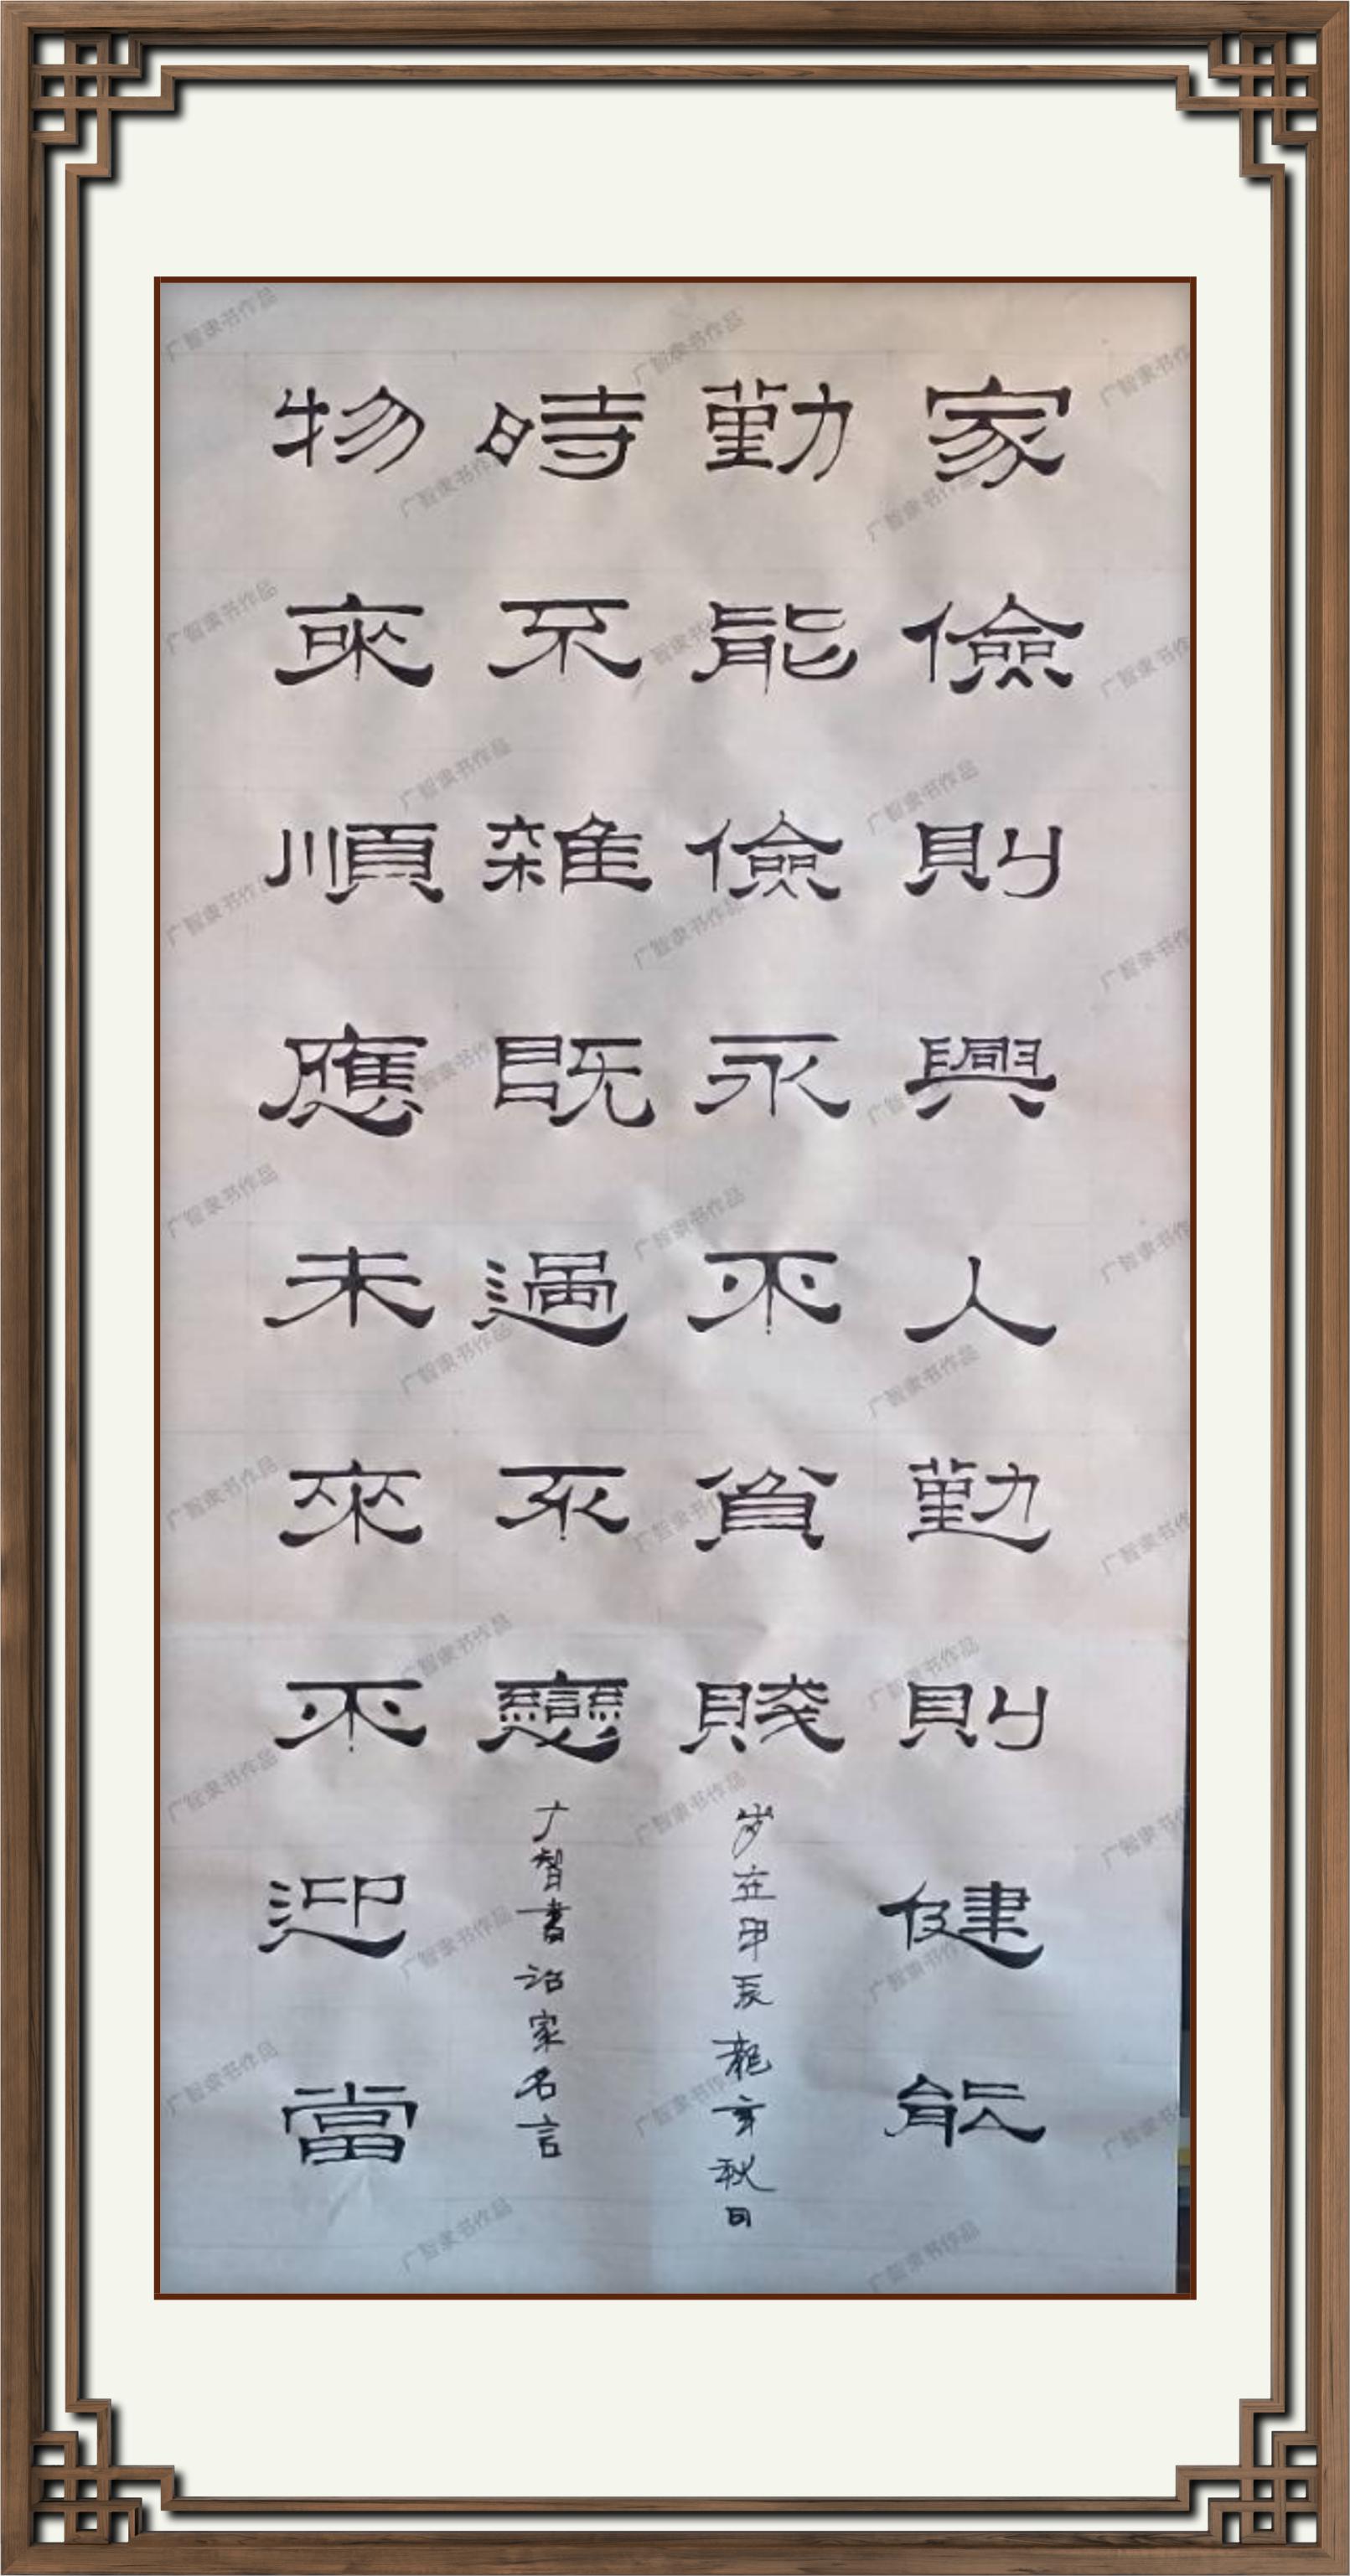 家儉則興人勤則健能
勤能儉永不貧賤
岁在甲辰龍年秋日
時不雜既過不戀
广智書治家名言
物來順應未來不迎當
广智隶书作品